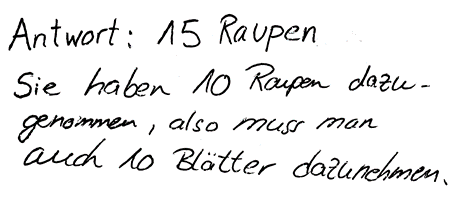 Antwort: 15 Raupen
Sie haben 10 Raupen dazu-
genommen, also muss man
auch 10 Blätter dazunehmen.